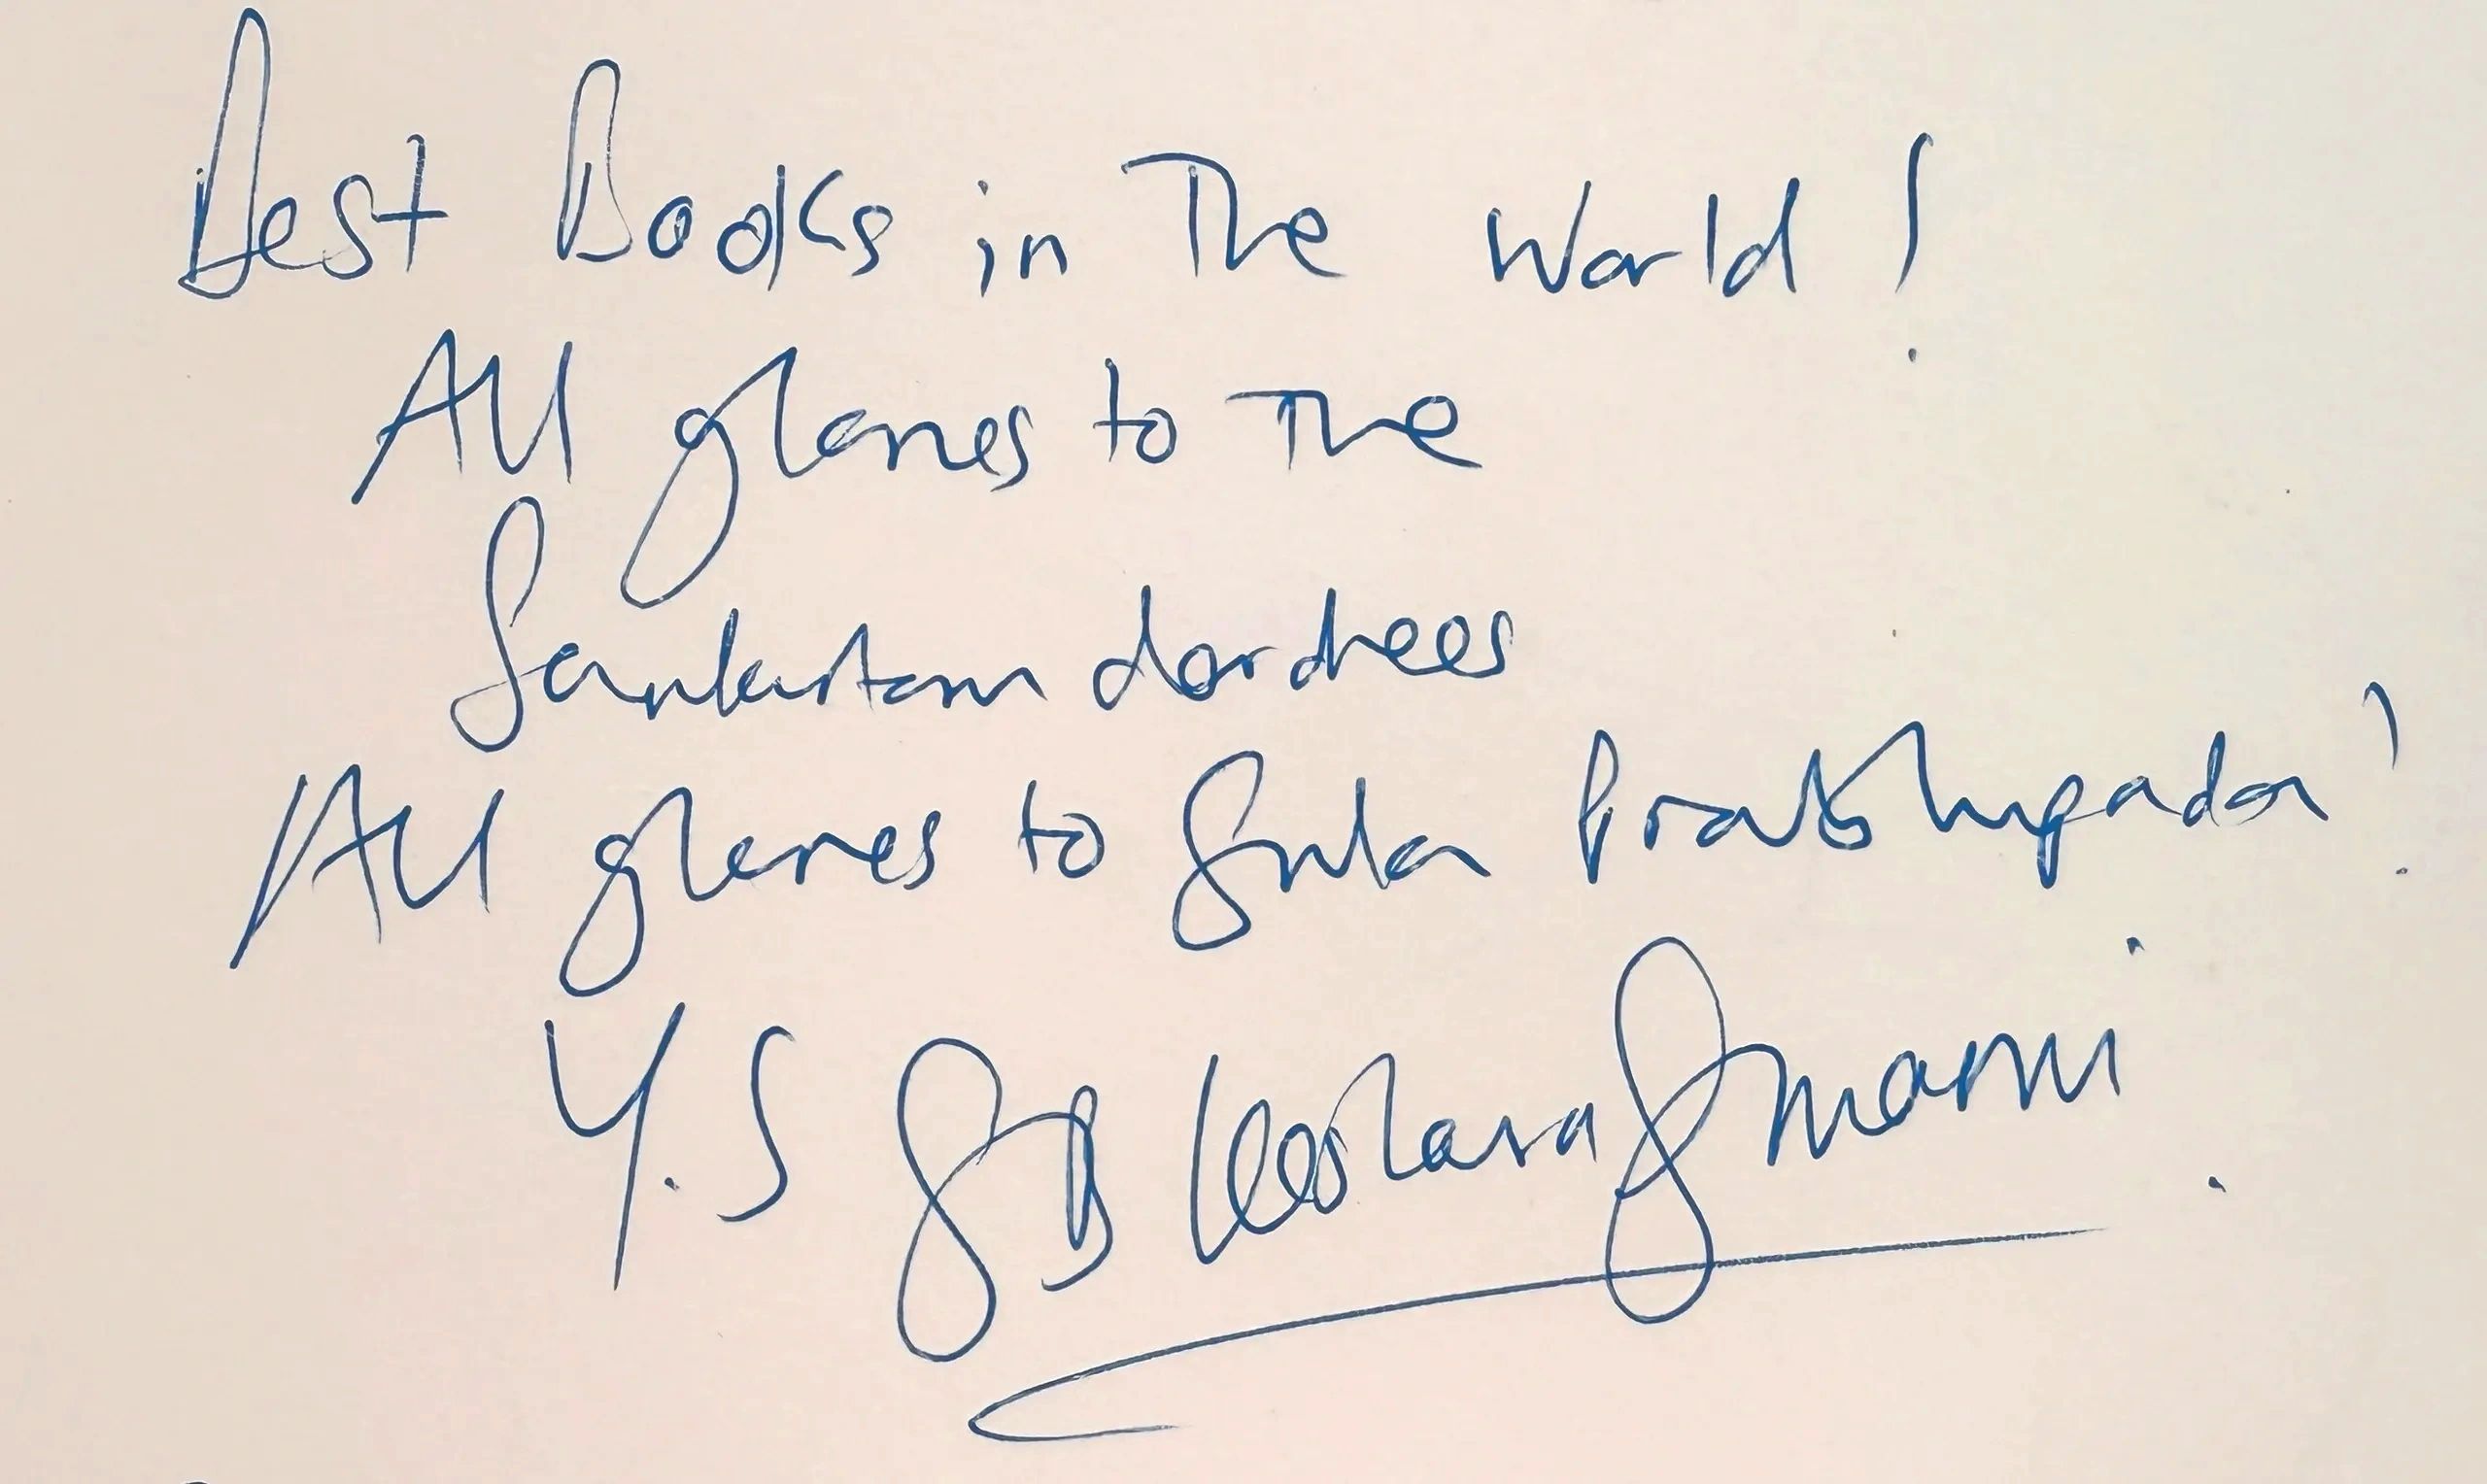 Best Books in The World!
All glories to The
Sankirtan devotees
All glories to Srila Prabhupada!
Y.S SB Keshava Swami.